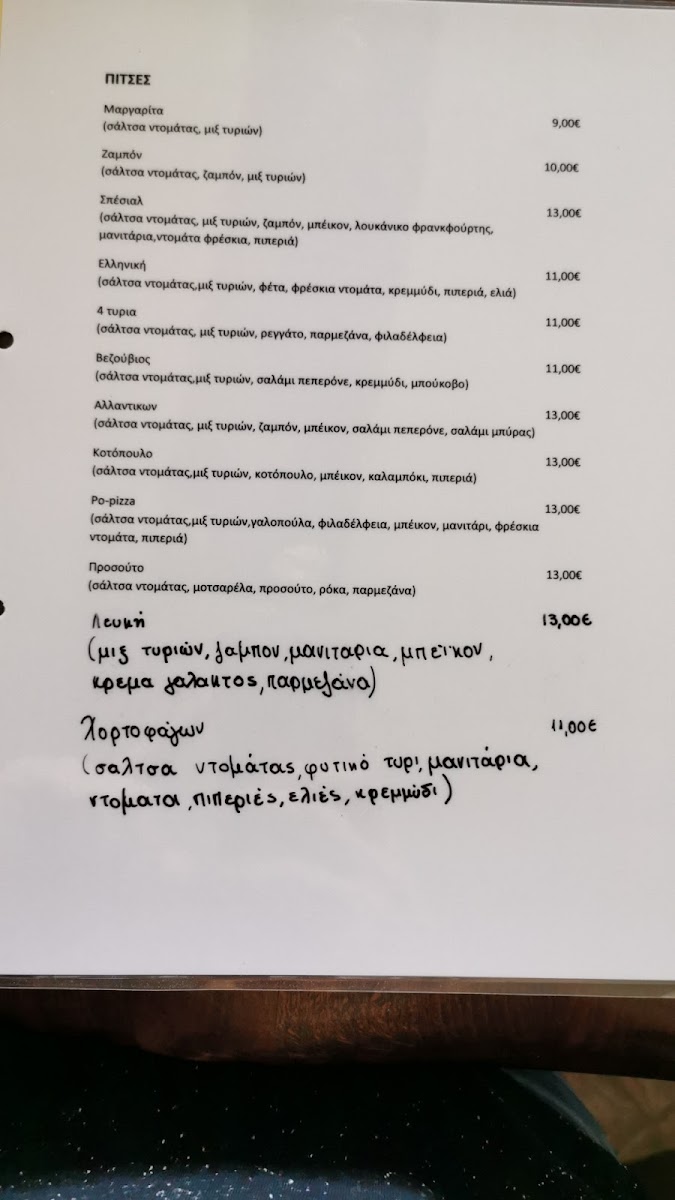 ΠΙΤΣΕΣ
Μαργαρίτα
(σάλτσα ντομάτας, μιξ τυριών) 9,00€
Ζαμπόν
(σάλτσα ντομάτας, ζαμπόν, μιξ τυριών) 10,00€
Σπέσιαλ 13,00€
(σάλτσα ντομάτας, μιξ τυριών, ζαμπόν, μπέικον, λουκάνικο φρανκφούρτης,
μανιτάρια,ντομάτα φρέσκια, πιπεριά)
Ελληνική 11,00€
(σάλτσα ντομάτας,μιξ τυριών, φέτα, φρέσκια ντομάτα, κρεμμύδι, πιπεριά, ελιά)
4 τυρια 11,00€
(σάλτσα ντομάτας, μιξ τυριών, ρεγγάτο, παρμεζάνα, φιλαδέλφεια)
Βεζούβιος 11,00€
(σάλτσα ντομάτας,μιξ τυριών, σαλάμι πεπερόνε, κρεμμύδι, μπούκοβο)
Αλλαντικων 13,00€
(σάλτσα ντομάτας, μιξ τυριών, ζαμπόν, μπέικον, σαλάμι πεπερόνε, σαλάμι μπύρας)
Κοτόπουλο 13,00€
(σάλτσα ντομάτας,μιξ τυριών, κοτόπουλο, μπέικον, καλαμπόκι, πιπεριά)
Po-pizza 13,00€
(σάλτσα ντομάτας,μιξ τυριών,γαλοπούλα, φιλαδέλφεια, μπέικον, μανιτάρι, φρέσκια
ντομάτα, πιπεριά)
Προσούτο 13,00€
(σάλτσα ντομάτας, μοτσαρέλα, προσούτο, ρόκα, παρμεζάνα)
Λευκή 13,00€
(μιξ τυριών, ζαμπον, μανιταρια, μπέϊκον,
κρεμα γαλακτος, παρμεζάνα)
Χορτοφάγων 11,00€
(σαλτσα ντομάτας, φυτικό τυρι, μανιτάρια,
ντοματα, πιπεριές, ελιές, κρεμμύδι)